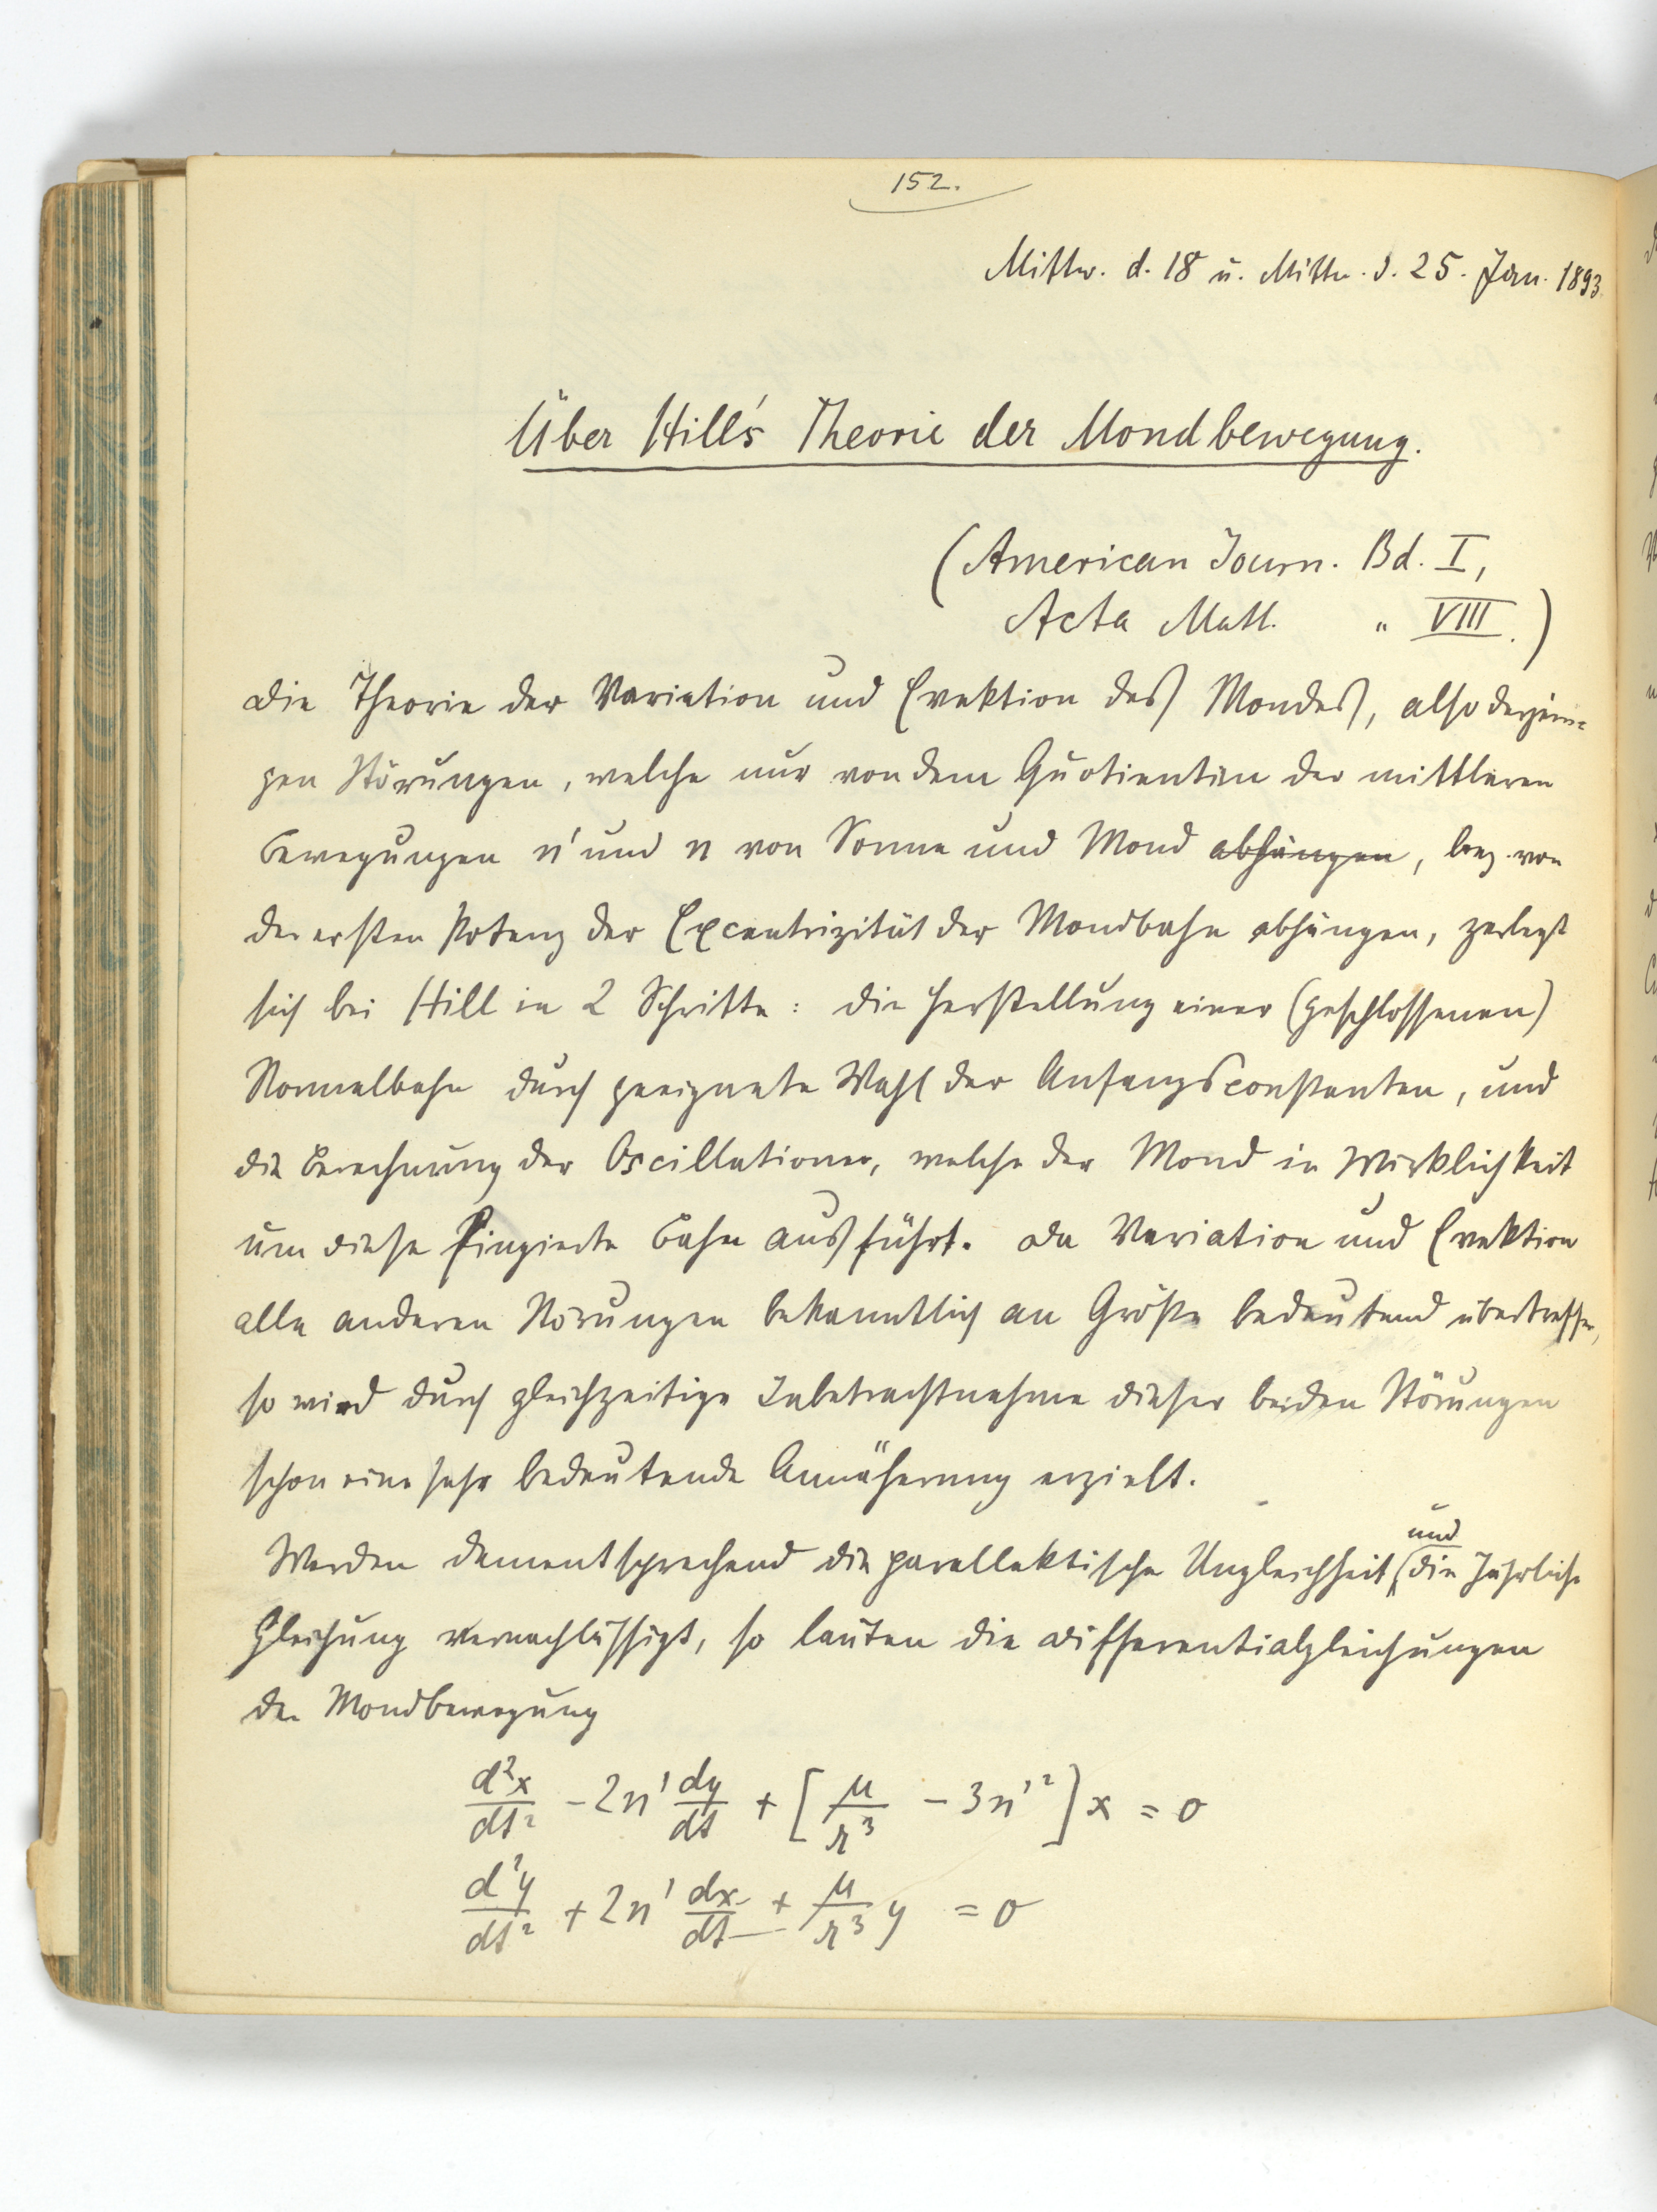 152.
Mittw. d. 18 u. Mittw. d. 25. Jan. 1893.
Über Hill's Theorie der Mondbewegung.
(American Journ. Bd. I,
Acta Math. " VIII.)
Die Theorie der Variation und Evektion des Mondes, also derjeni-
gen Störungen, welche nur von dem Quotienten der mittleren
Bewegungen n' und n von Sonne und Mond abhängen, bez. von
der ersten Potenz der Excentrizität der Mondbahn abhängen, zerlegt
sich bei Hill in 2 Schritte: die Herstellung einer (geschlossenen)
Normalbahn durch geeignete Wahl der Anfangsconstanten, und
die Berechnung der Oscillationen, welche der Mond in Wirklichkeit
um diese fingierte Bahn ausführt. Da Variation und Evektion
alle anderen Störungen bekanntlich an Größe bedeutend übertreffen,
so wird durch gleichzeitige Inbetrachtnahme dieser beiden Störungen
schon eine sehr bedeutende Annäherung erzielt.
Werden dementsprechend die parallaktische Ungleichheit und die jährliche
Gleichung vernachlässigt, so lauten die Differentialgleichungen
der Mondbewegung
d²x/dt² - 2n' dy/dt + [μ/r³ - 3n'²] x = 0
d²y/dt² + 2n' dx/dt + μ/r³ y = 0